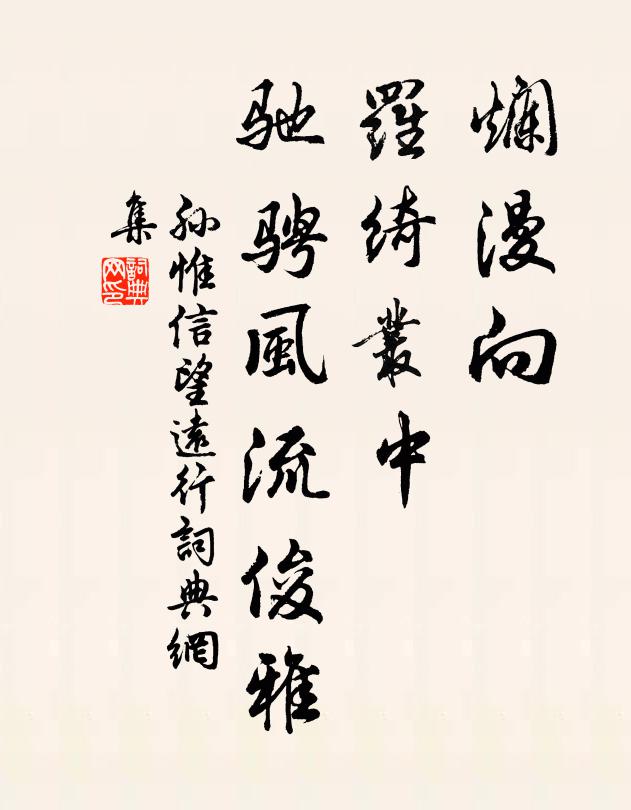 爛漫向
羅綺叢中
馳騁風流俊雅
孫惟信望遠行詞典網
集
詞典
网印